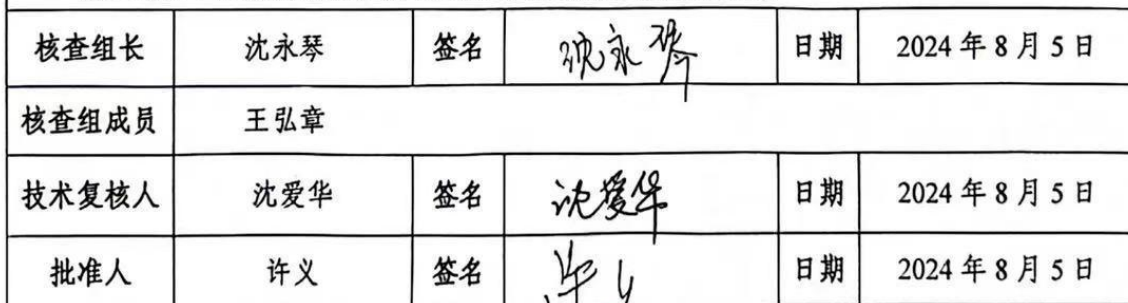 核查组长 沈永琴 签名 沈永琴 日期 2024年8月5日
核查组成员 王弘章
技术复核人 沈爱华 签名 沈爱华 日期 2024年8月5日
批准人 许义 签名 许义 日期 2024年8月5日